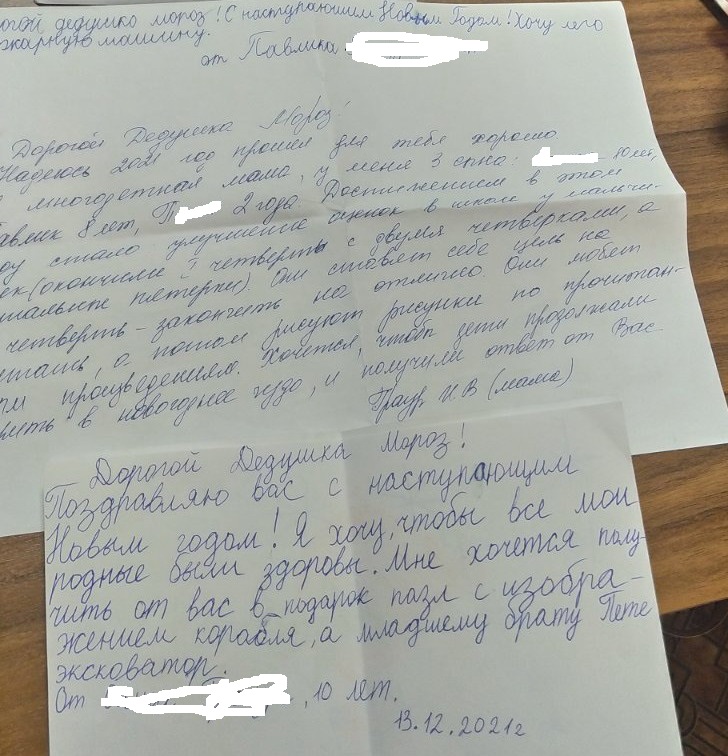 огой дедушко мороз! С наступающим Новым Годом! Хочу лего
жарную машину.
от Павлика
Дорогой Дедушка Мороз!
Надеюсь 2021 год прошел для тебя хорошо
многодетная мама, у меня 3 сына: 10 лет,
авлик 8 лет, П 2 года. Достижением в этом
ду стало улучшение оценок в школе у мальчи-
ек (окончили четверть с двумя четверками, а
стальные пятерки). Они ставят себе цель на
четверть - закончить на отлично. Они любят
итать, а потом рисуют рисунки по прочитан-
ым произведениям. Хочется, чтобы дети продолжали
рить в новогоднее чудо, и получили ответ от Вас
Праур И В (мама)
Дорогой Дедушка Мороз!
Поздравляю вас с наступающим
Новым годом! Я хочу, чтобы все мои
родные были здоровы. Мне хочется полу-
чить от вас в подарок пазл с изобра-
жением корабля, а младшему брату Пете
эксковатор.
От , 10 лет.
13.12.2021г